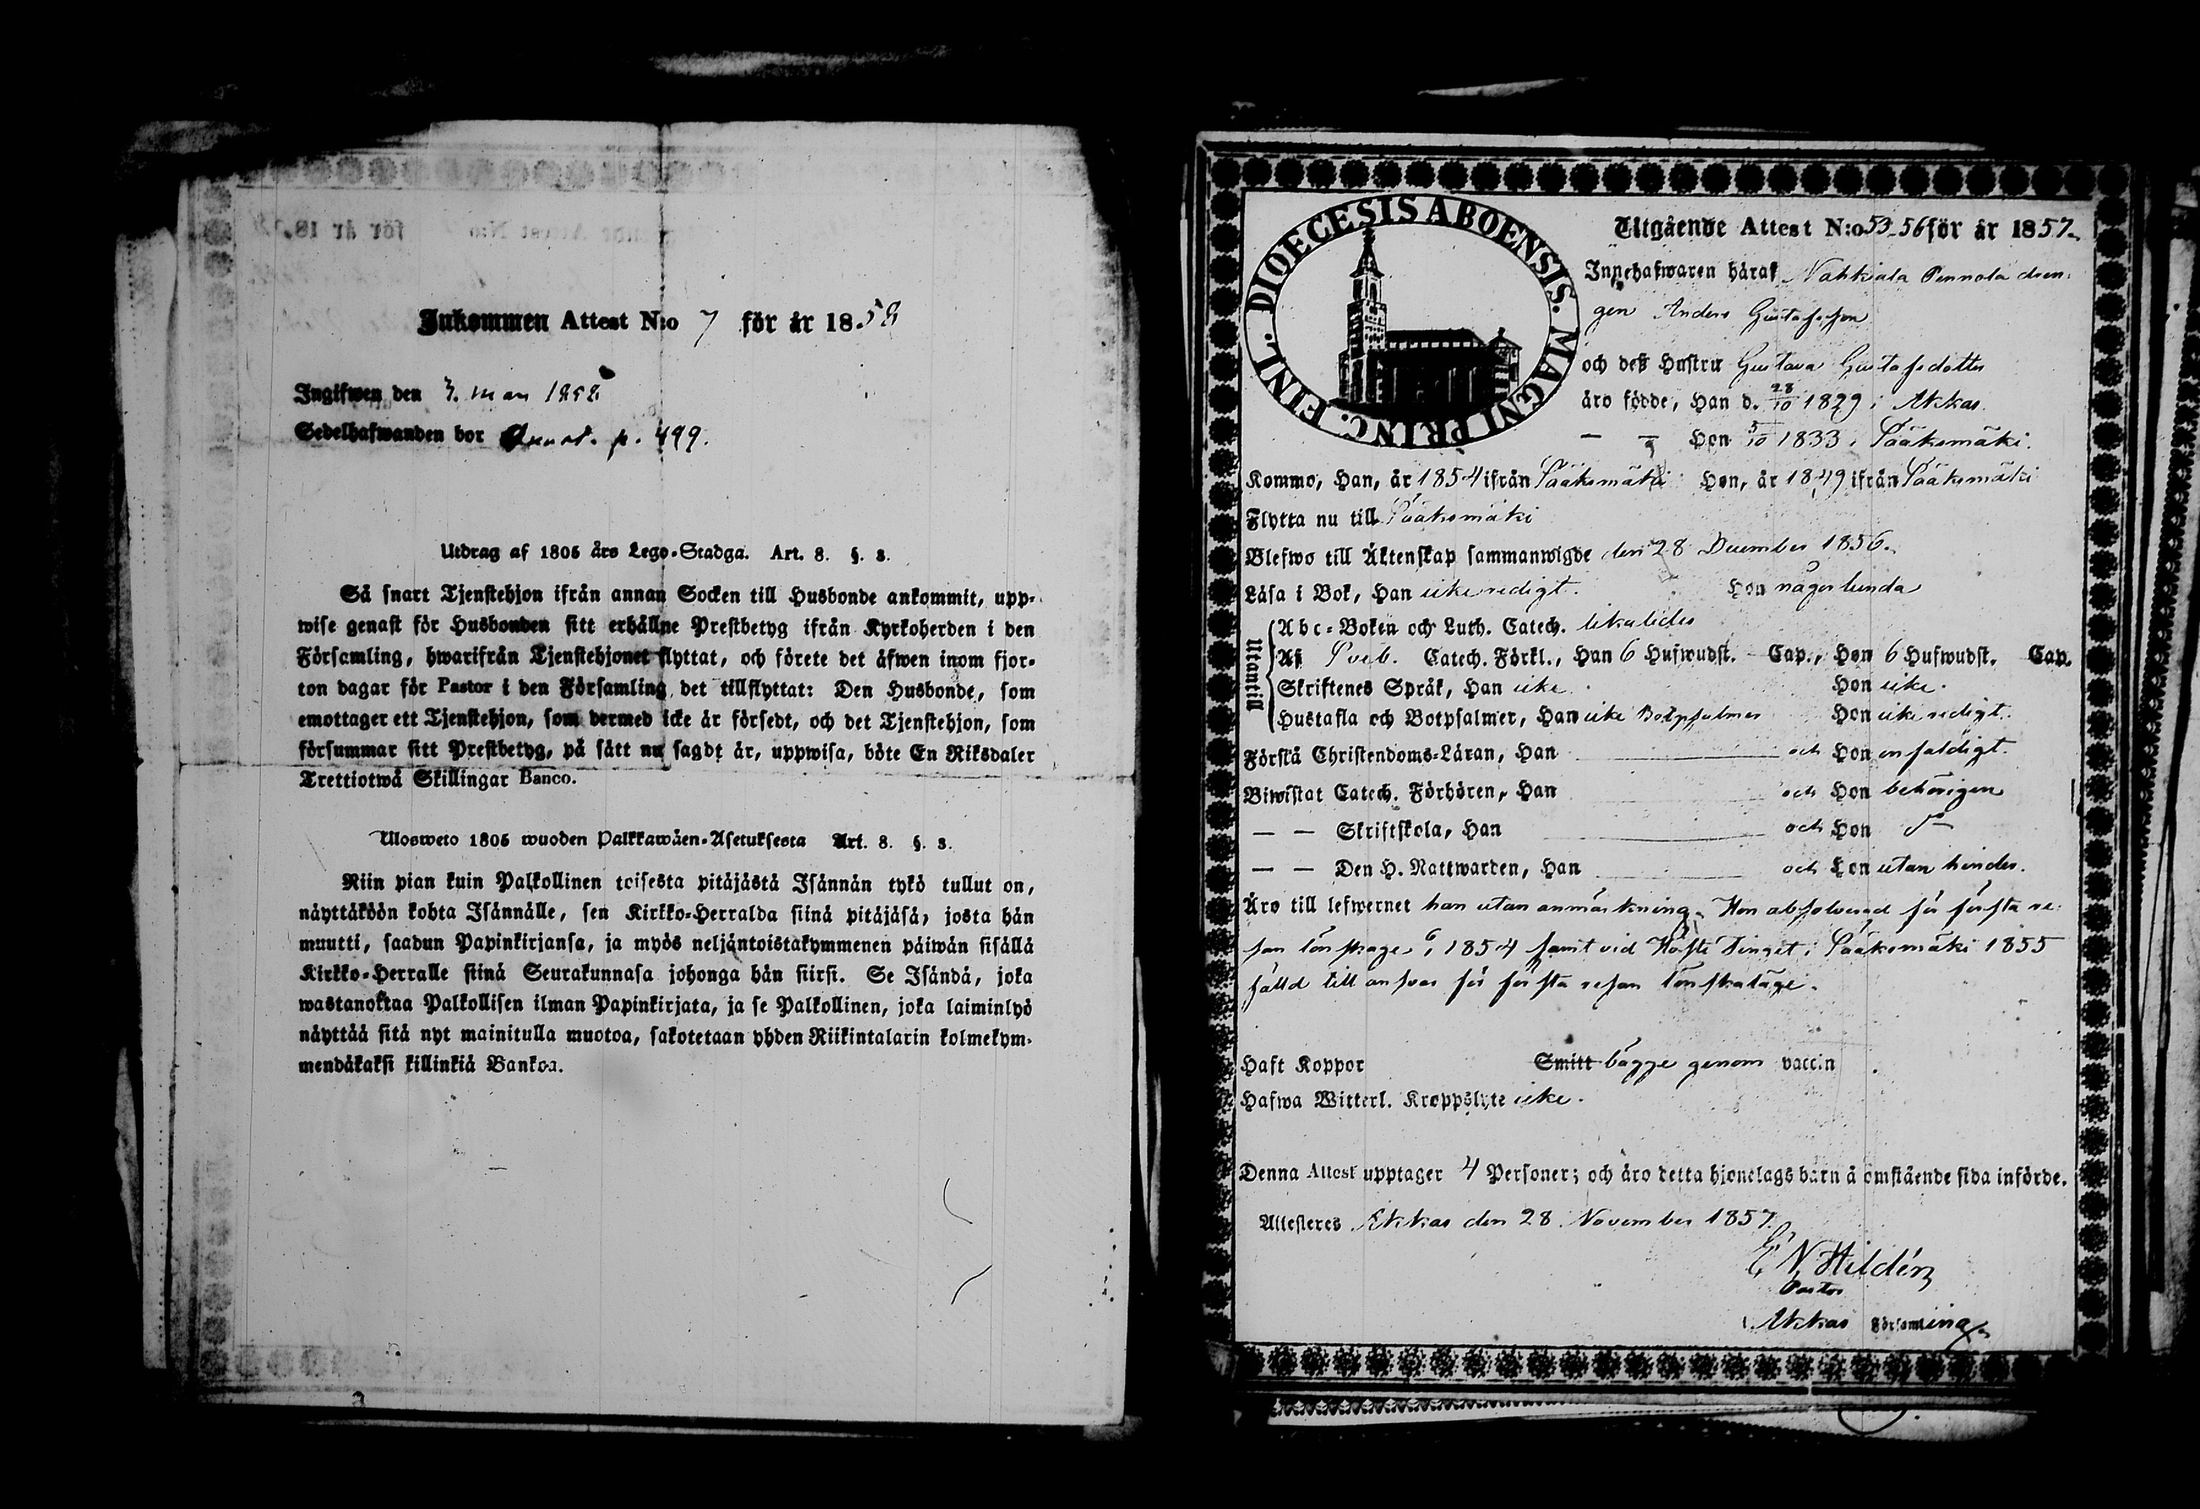 Inkommen Attest N:o 7 för år 1858
Ingifwen den 3. mars 1858
Sedelhafwanden bor p. 499.
Utdrag af 1805 års Lego-Stadga. Art. 8. §. 3.
Så snart Tjenstehjon ifrån annan Socken till Husbonde ankommit, upp-
wise genast för Husbonden sitt erhållne Prestbetyg ifrån Kyrkoherden i den
Församling, hwarifrån Tjenstehjonet flyttat, och förete det äfwen inom fjor-
ton dagar för Pastor i den Församling det tillflyttat: Den Husbonde, som
emottager ett Tjenstehjon, som dermed icke är försedt, och det Tjenstehjon, som
försummar sitt Prestbetyg, på sätt nu sagdt är, uppwisa, böte En Riksdaler
Trettiotwå Skillingar Banco.
Ulosweto 1805 wuoden Palkkawäen-Asetuksesta Art. 8. §. 3.
Niin pian kuin Palkollinen toisesta pitäjästä Isännän tykö tullut on,
näyttäköön kohta Isännälle, sen Kirkko-Herralda siinä pitäjäsä, josta hän
muutti, saadun Papinkirjansa, ja myös neljäntoistakymmenen päiwän sisällä
Kirkko-Herralle siinä Seurakunnasa johonga hän siirsi. Se Isändä, joka
wastanottaa Palkollisen ilman Papinkirjata, ja se Palkollinen, joka laiminlyö
näyttää sitä nyt mainitulla muotoa, sakotetaan yhden Riikintalarin kolmekym-
mendäkaksi killinkiä Bankoa.
DIOECESIS ABOENSIS. MAGNI PRINC. FINL.
Utgående Attest N:o 53-56 för år 1857.
Innehafwaren häraf Nahkiala Pennola dren-
gen Anders Gustafsson
och deß Hustru Gustava Gustafsdotter
äro födde, Han d. 28/10 1829 i Akkas.
— — Hon 5/10 1833 i Sääksmäki.
Kommo, Han, år 1854 ifrån Sääksmäki Hon, år 1849 ifrån Sääksmäki
Flytta nu till Sääksmäki
Blefwo till Äktenskap sammanwigde den 28 December 1856.
Läsa i Bok, Han icke redigt. Hon någorlunda
Utantill
Abc-Boken och Luth. Catech. likaledes
Af Sveb. Catech. Förkl., Han 6 Hufwudst. Cap., Hon 6 Hufwudst. Cap.
Skriftenes Språk, Han icke Hon icke.
Hustafla och Botpsalmer, Han icke Botpsalmer Hon icke redigt.
Förstå Christendoms-Läran, Han och Hon enfaldigt.
Biwistat Catech. Förhören, Han och Hon behörigen
— — Skriftskola, Han och Hon d:o
— — Den H. Nattwarden, Han och Hon utan hinder.
Äro till lefwernet han utan anmärkning. Hon absolverad för första re-
san lönskaläge 1854 samt vid Höste Tinget i Sääksmäki 1855
fälld till ansvar för första resan lönskaläge.
Haft Koppor Smitt bägge genom vaccin
Hafwa Witterl. Kroppslyte icke.
Denna Attest upptager 4 Personer; och äro detta hjonelags barn å omstående sida införde.
Attesteres Akkas den 28 November 1857.
E N Hildén
Pastor
i Akkas Församling.